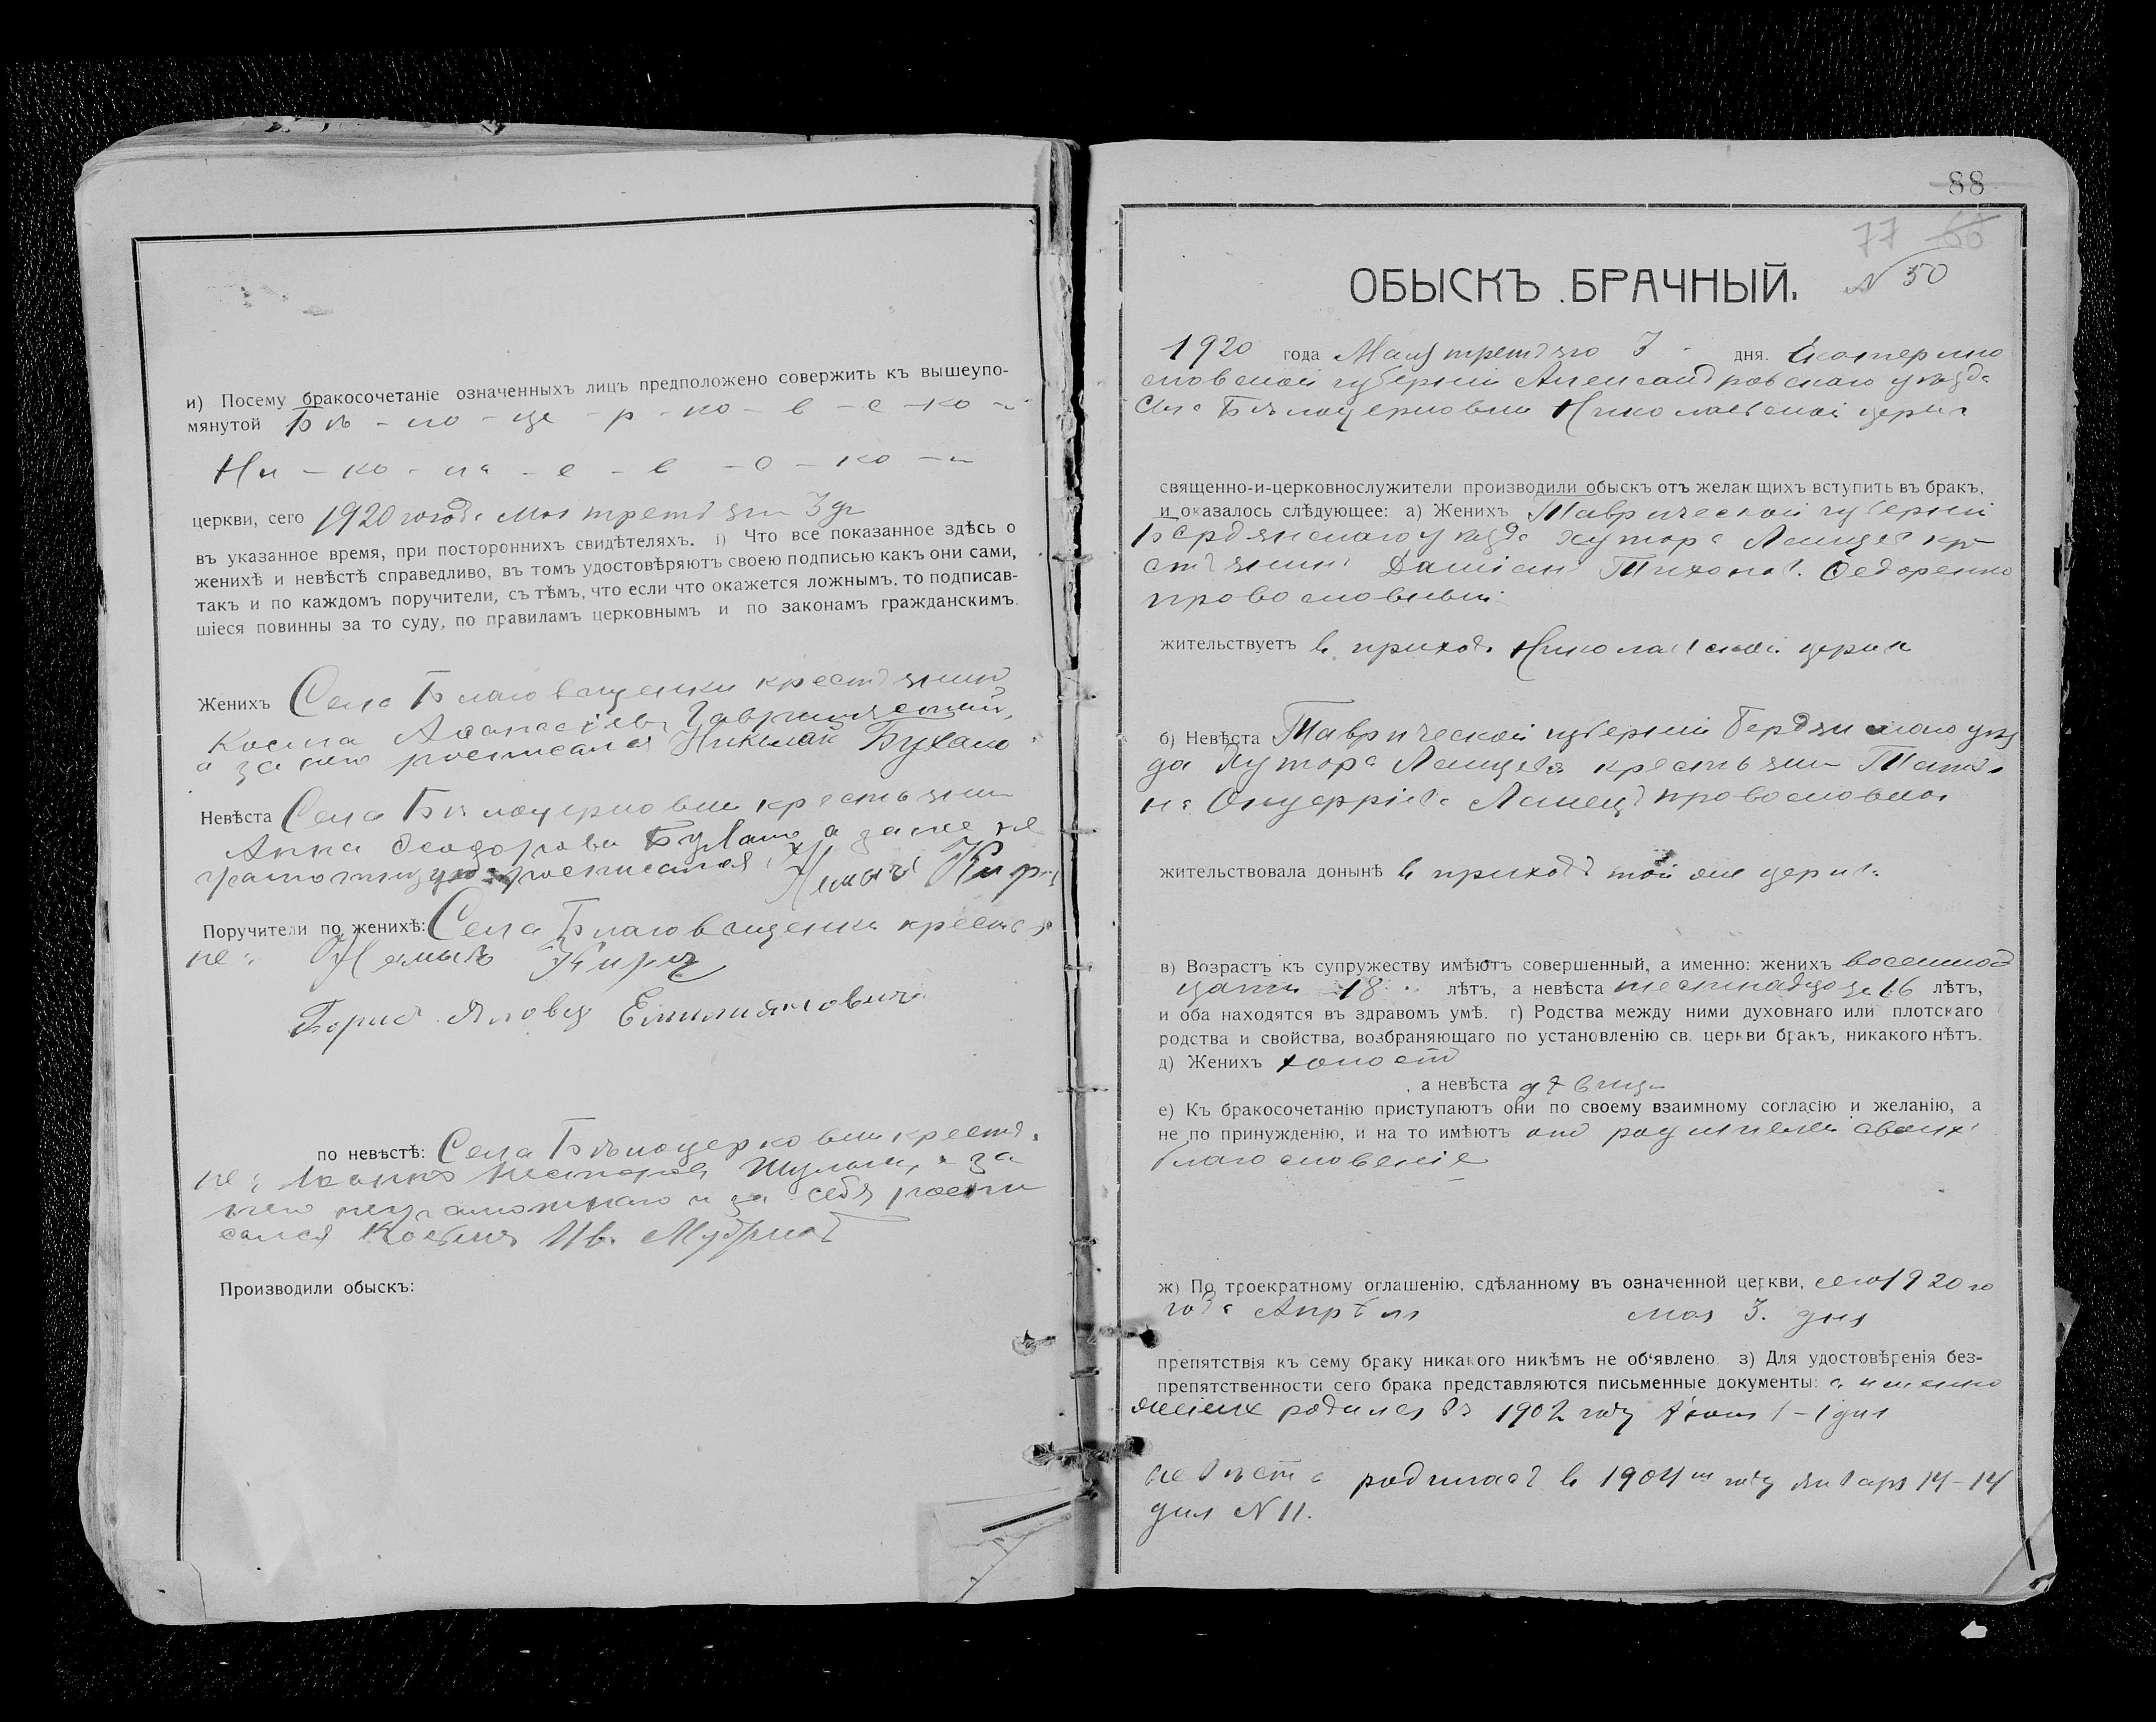 и) Посему бракосочетаніе означенныхъ лицъ предположено совержить къ вышеупо-
мянутой Бѣ - ло - це - р - ко - в - с - ко - й
Ни - ко - ла - е - в - с - ко - й
церкви, сего 1920 года мая третьяго 3 дн
въ указанное время, при постороннихъ свидѣтеляхъ. і) Что все показанное здѣсь о
женихѣ и невѣстѣ справедливо, въ томъ удостовѣряютъ своею подписью какъ они сами,
такъ и по каждомъ поручители, съ тѣмъ, что если что окажется ложнымъ, то подписав-
шіеся повинны за то суду, по правиламъ церковнымъ и по законамъ гражданскимъ.
Женихъ Села Благовѣщенки крестьянинъ
Косма Аѳанасіевъ
а за него росписался Николай Бухало
Невѣста Села Бѣлоцерковки крестьянка
Анна Ѳеодорова а за нее не
грамотную росписался
Поручители по женихѣ: Села Благовѣщенки крестья
не:
Борисъ Яловец Емилиянович
по невѣстѣ: Села Бѣлоцерковки крестья
не: Несторовъ Шульга, а за
него неграмотнаго и за себя роспи
сался Косьма Ив.
Производили обыскъ:
88
77 66
ОБЫСКЪ БРАЧНЫЙ.
N 50
1920 года Мая третьяго 3 - дня. Екатерино
славской губерніи Александровскаго уѣзда
Села Бѣлоцерковки Николаевской церкв
священно-и-церковнослужители производили обыскъ отъ желающихъ вступить въ бракъ,
и оказалось слѣдующее: а) Женихъ Таврической губерніи
Бердянскаго уѣзда хутора кре
стьянинъ Даміанъ Тихоновъ Федоренко
провославный
жительствуетъ в приходѣ Николаевской церкви
б) Невѣста Таврической губерніи Бердянскаго уѣз
да Хутора крестьянка Татья
на Онуфріева провославная
жительствовала донынѣ в приходѣ той же церкви
в) Возрастъ къ супружеству имѣютъ совершенный, а именно: женихъ восемнад
цати 18 лѣтъ, а невѣста шестнадцать 16 лѣтъ,
и оба находятся въ здравомъ умѣ. г) Родства между ними духовнаго или плотскаго
родства и свойства, возбраняющаго по установленію св. церкви бракъ, никакого нѣтъ.
д) Женихъ холостъ
а невѣста дѣвица
е) Къ бракосочетанію приступаютъ они по своему взаимному согласію и желанію, а
не по принужденію, и на то имѣютъ отъ родителей своихъ
благословеніе
ж) По троекратному оглашенію, сдѣланному въ означенной церкви, сего 1920 го
года Апрѣля мая 3. дня
препятствія къ сему браку никакого никѣмъ не об‘явлено з) Для удостовѣренія без-
препятственности сего брака представляются письменные документы: а именно
жених родился въ 1902 году 1 - 1 дня
невѣста родилась в 1904м году января 14 - 14
дня N 11.